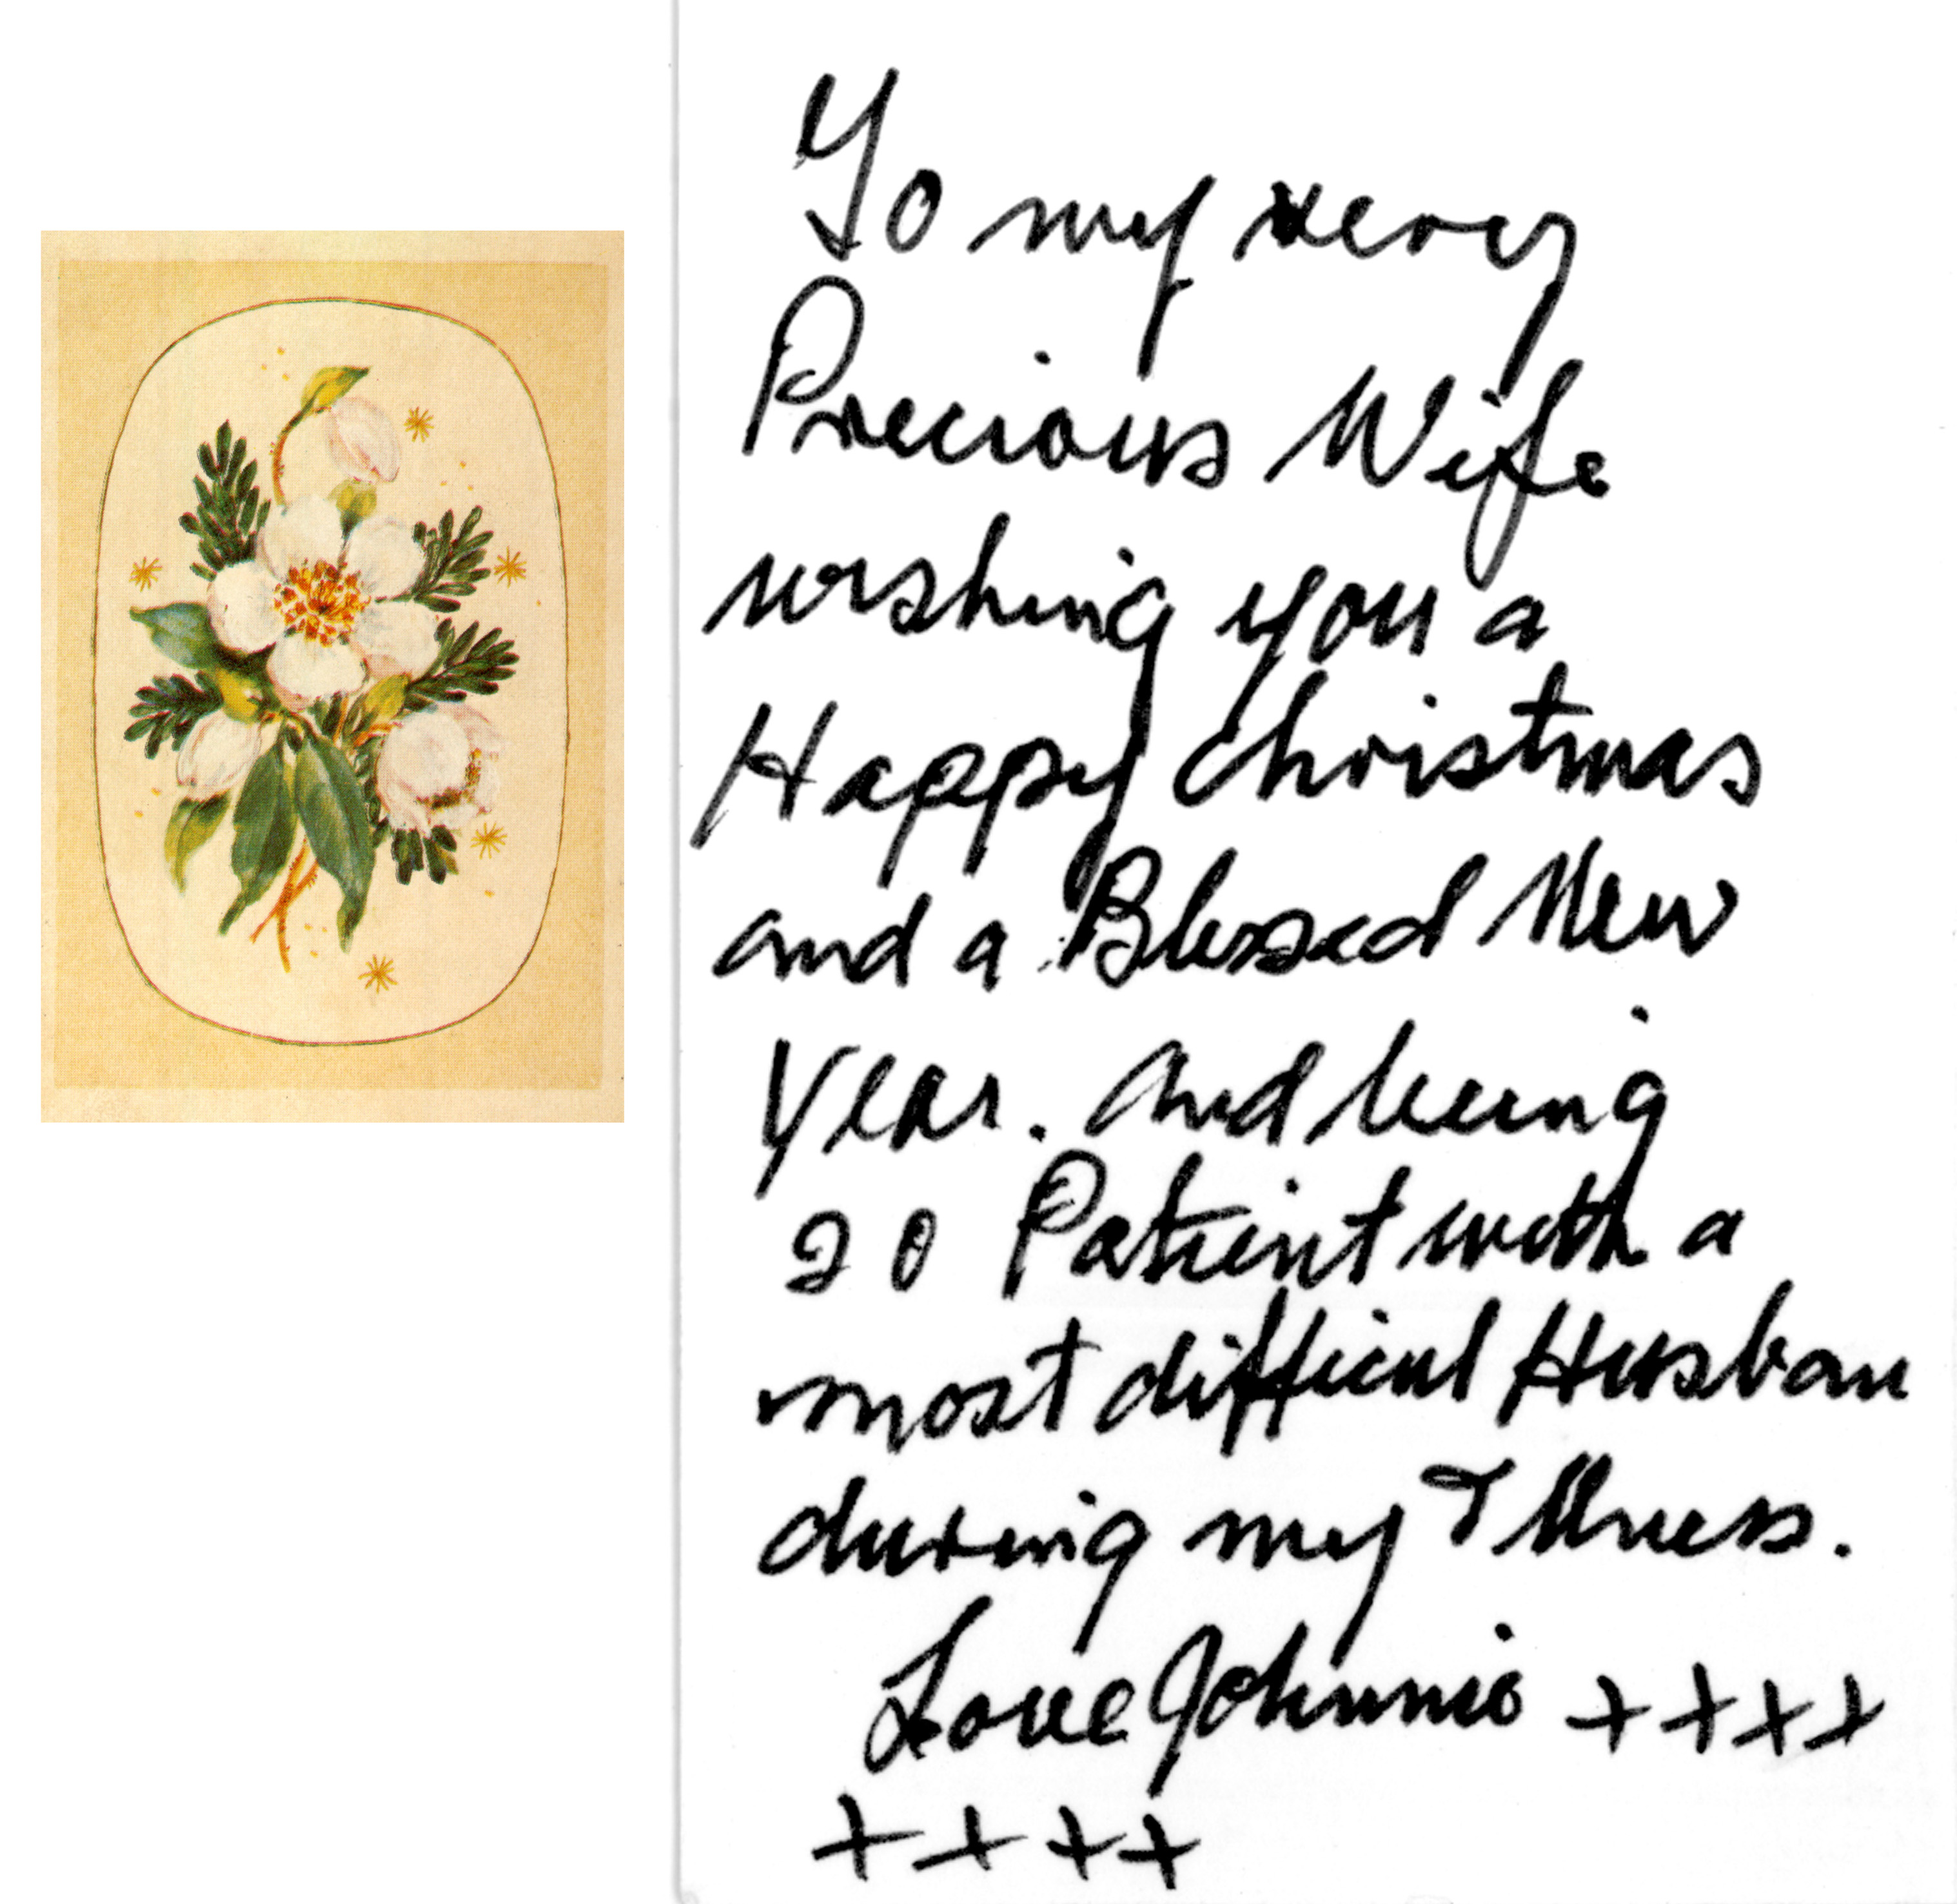 To my very
Precious Wife
wishing you a
Happy Christmas
and a Blessed New
Year. And being
so Patient with a
most difficul Husban
during my Illness.
Love Johnnie ++++
++++